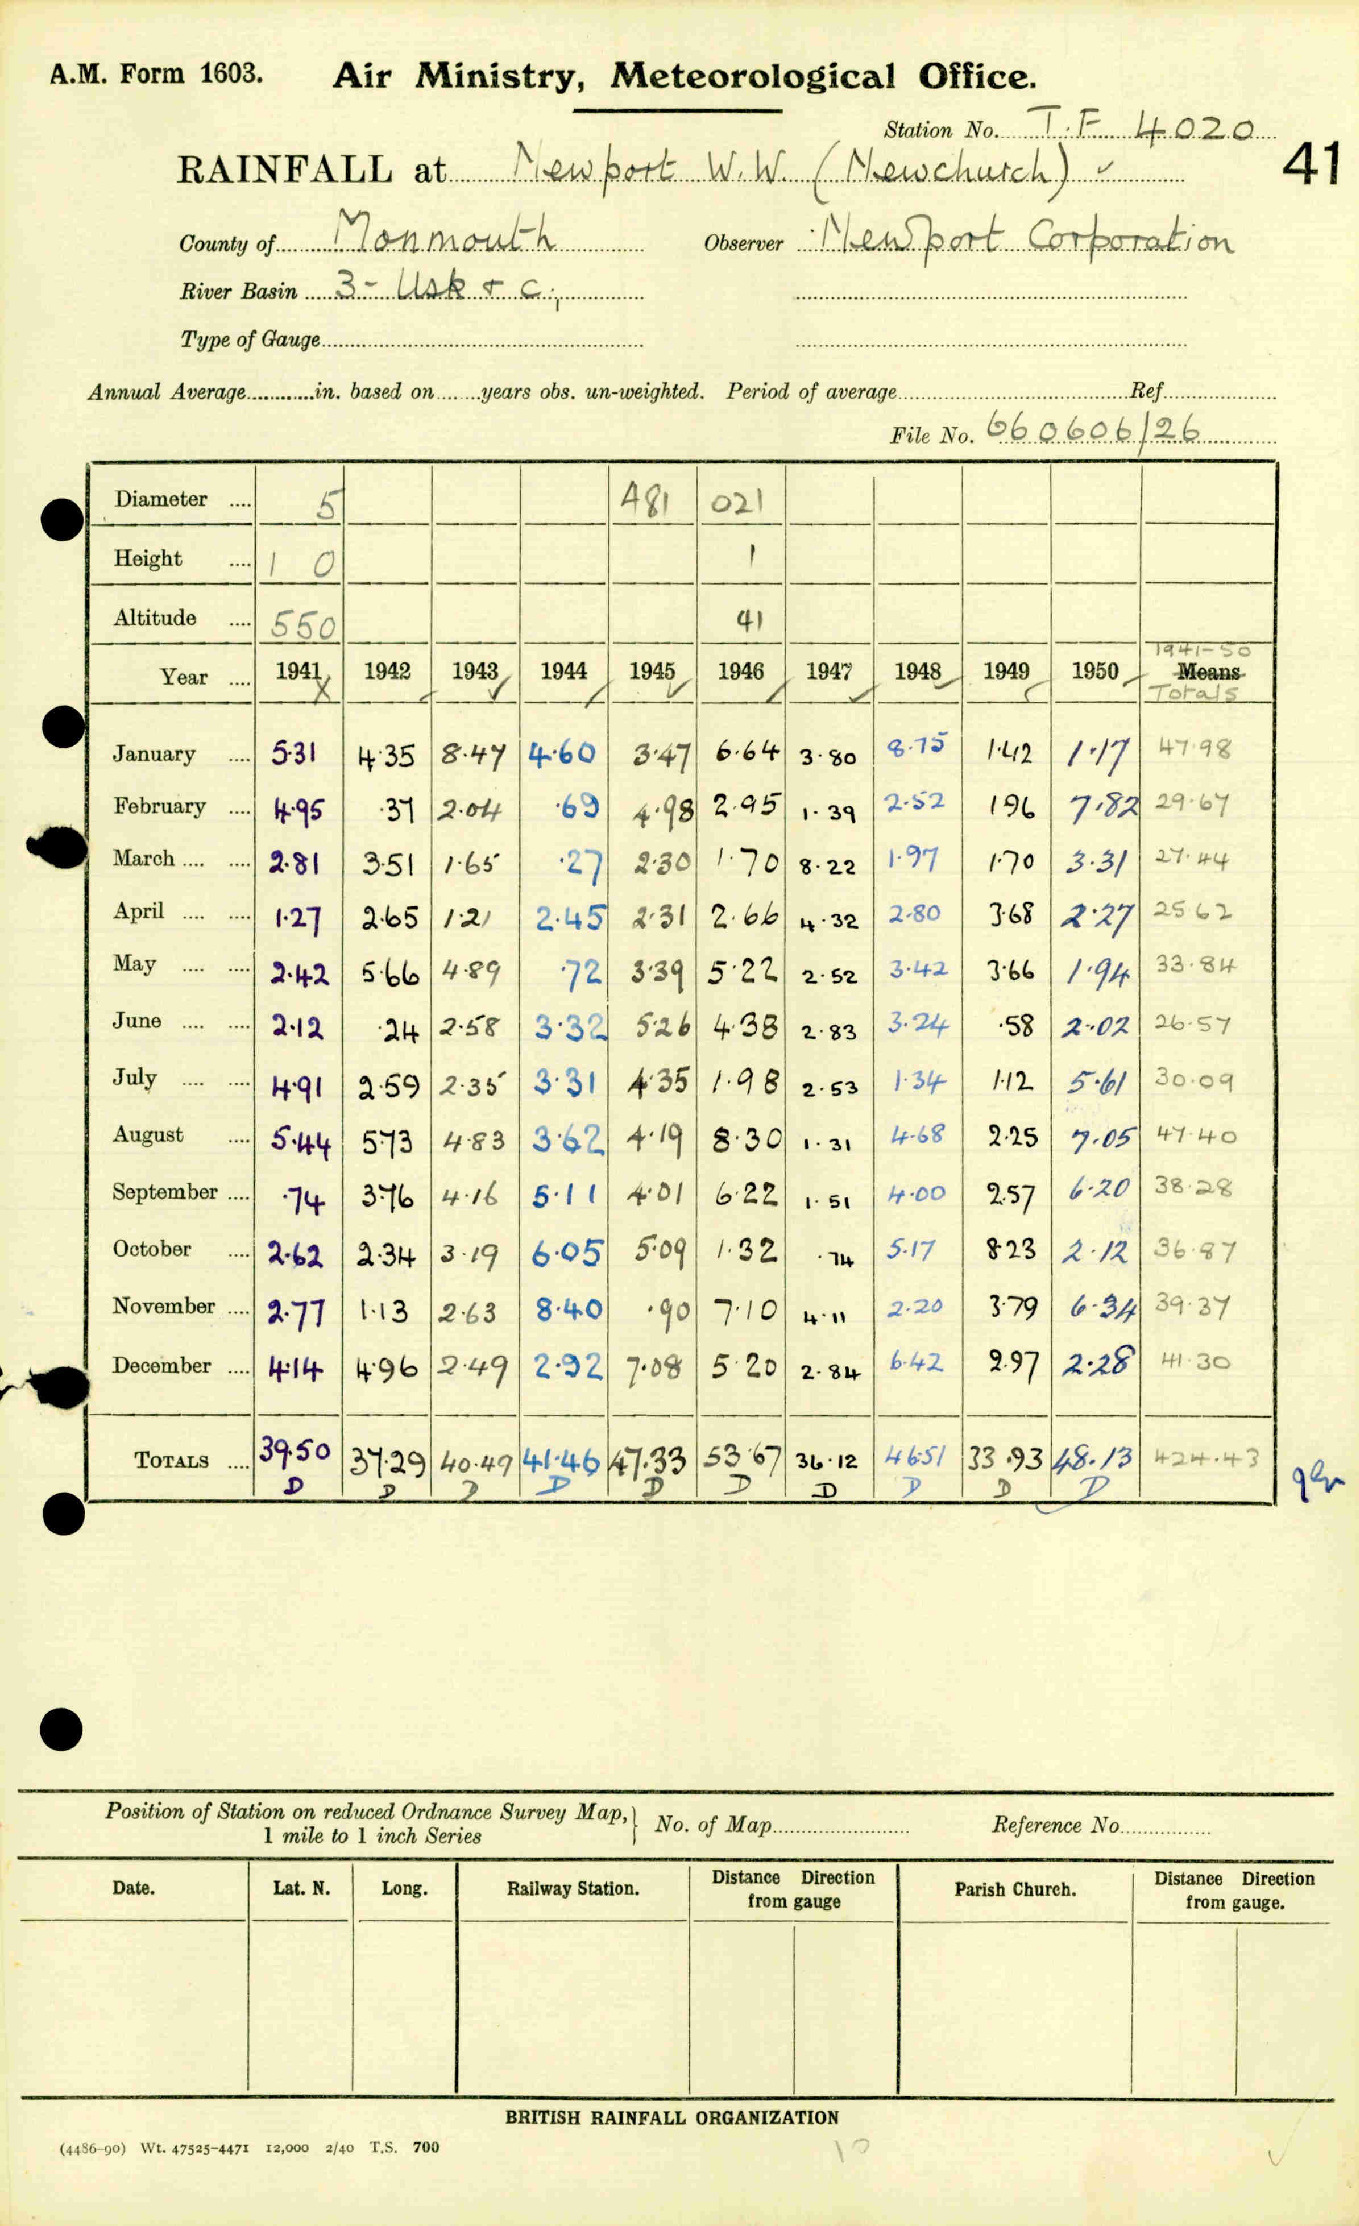 A.M. Form 1603. Air Ministry, Meteorological Office.
Station No. T.F. 4020
41
RAINFALL at Newport W.W. (Newchurch) ✓
County of Monmouth Observer Newport Corporation
River Basin 3 - Usk & c.,
Type of Gauge
Annual Average in. based on years obs. un-weighted. Period of average Ref.
File No. 660606/26
Diameter .... 5 A81 021
Height .... 1 0 1
Altitude .... 550 41
1941-50
Year .... 1941 1942 1943 1944 1945 1946 1947 1948 1949 1950 Means
Totals
January .... 5.31 4.35 8.47 4.60 3.47 6.64 3.80 8.75 1.42 1.17 47.98
February .... 4.95 .37 2.04 .69 4.98 2.95 1.39 2.52 1.96 7.82 29.67
March .... .... 2.81 3.51 1.65 .27 2.30 1.70 8.22 1.97 1.70 3.31 27.44
April .... .... 1.27 2.65 1.21 2.45 2.31 2.66 4.32 2.80 3.68 2.27 25.62
May .... .... 2.42 5.66 4.89 .72 3.39 5.22 2.52 3.42 3.66 1.94 33.84
June .... .... 2.12 .24 2.58 3.32 5.26 4.38 2.83 3.24 .58 2.02 26.57
July .... .... 4.91 2.59 2.35 3.31 4.35 1.98 2.53 1.34 1.12 5.61 30.09
August .... 5.44 5.73 4.83 3.62 4.19 8.30 1.31 4.68 2.25 7.05 47.40
September .... .74 3.76 4.16 5.11 4.01 6.22 1.51 4.00 2.57 6.20 38.28
October .... 2.62 2.34 3.19 6.05 5.09 1.32 .74 5.17 8.23 2.12 36.87
November .... 2.77 1.13 2.63 8.40 .90 7.10 4.11 2.20 3.79 6.34 39.37
December .... 4.14 4.96 2.49 2.92 7.08 5.20 2.84 6.42 2.97 2.28 41.30
TOTALS .... 39.50 37.29 40.49 41.46 47.33 53.67 36.12 46.51 33.93 48.13 424.43
D D D D D D D D D D
Position of Station on reduced Ordnance Survey Map,
1 mile to 1 inch Series
No. of Map Reference No.
Date. Lat. N. Long. Railway Station. Distance Direction from gauge Parish Church. Distance Direction from gauge.
BRITISH RAINFALL ORGANIZATION
(4486-90) Wt. 47525-4471 12,000 2/40 T.S. 700
10